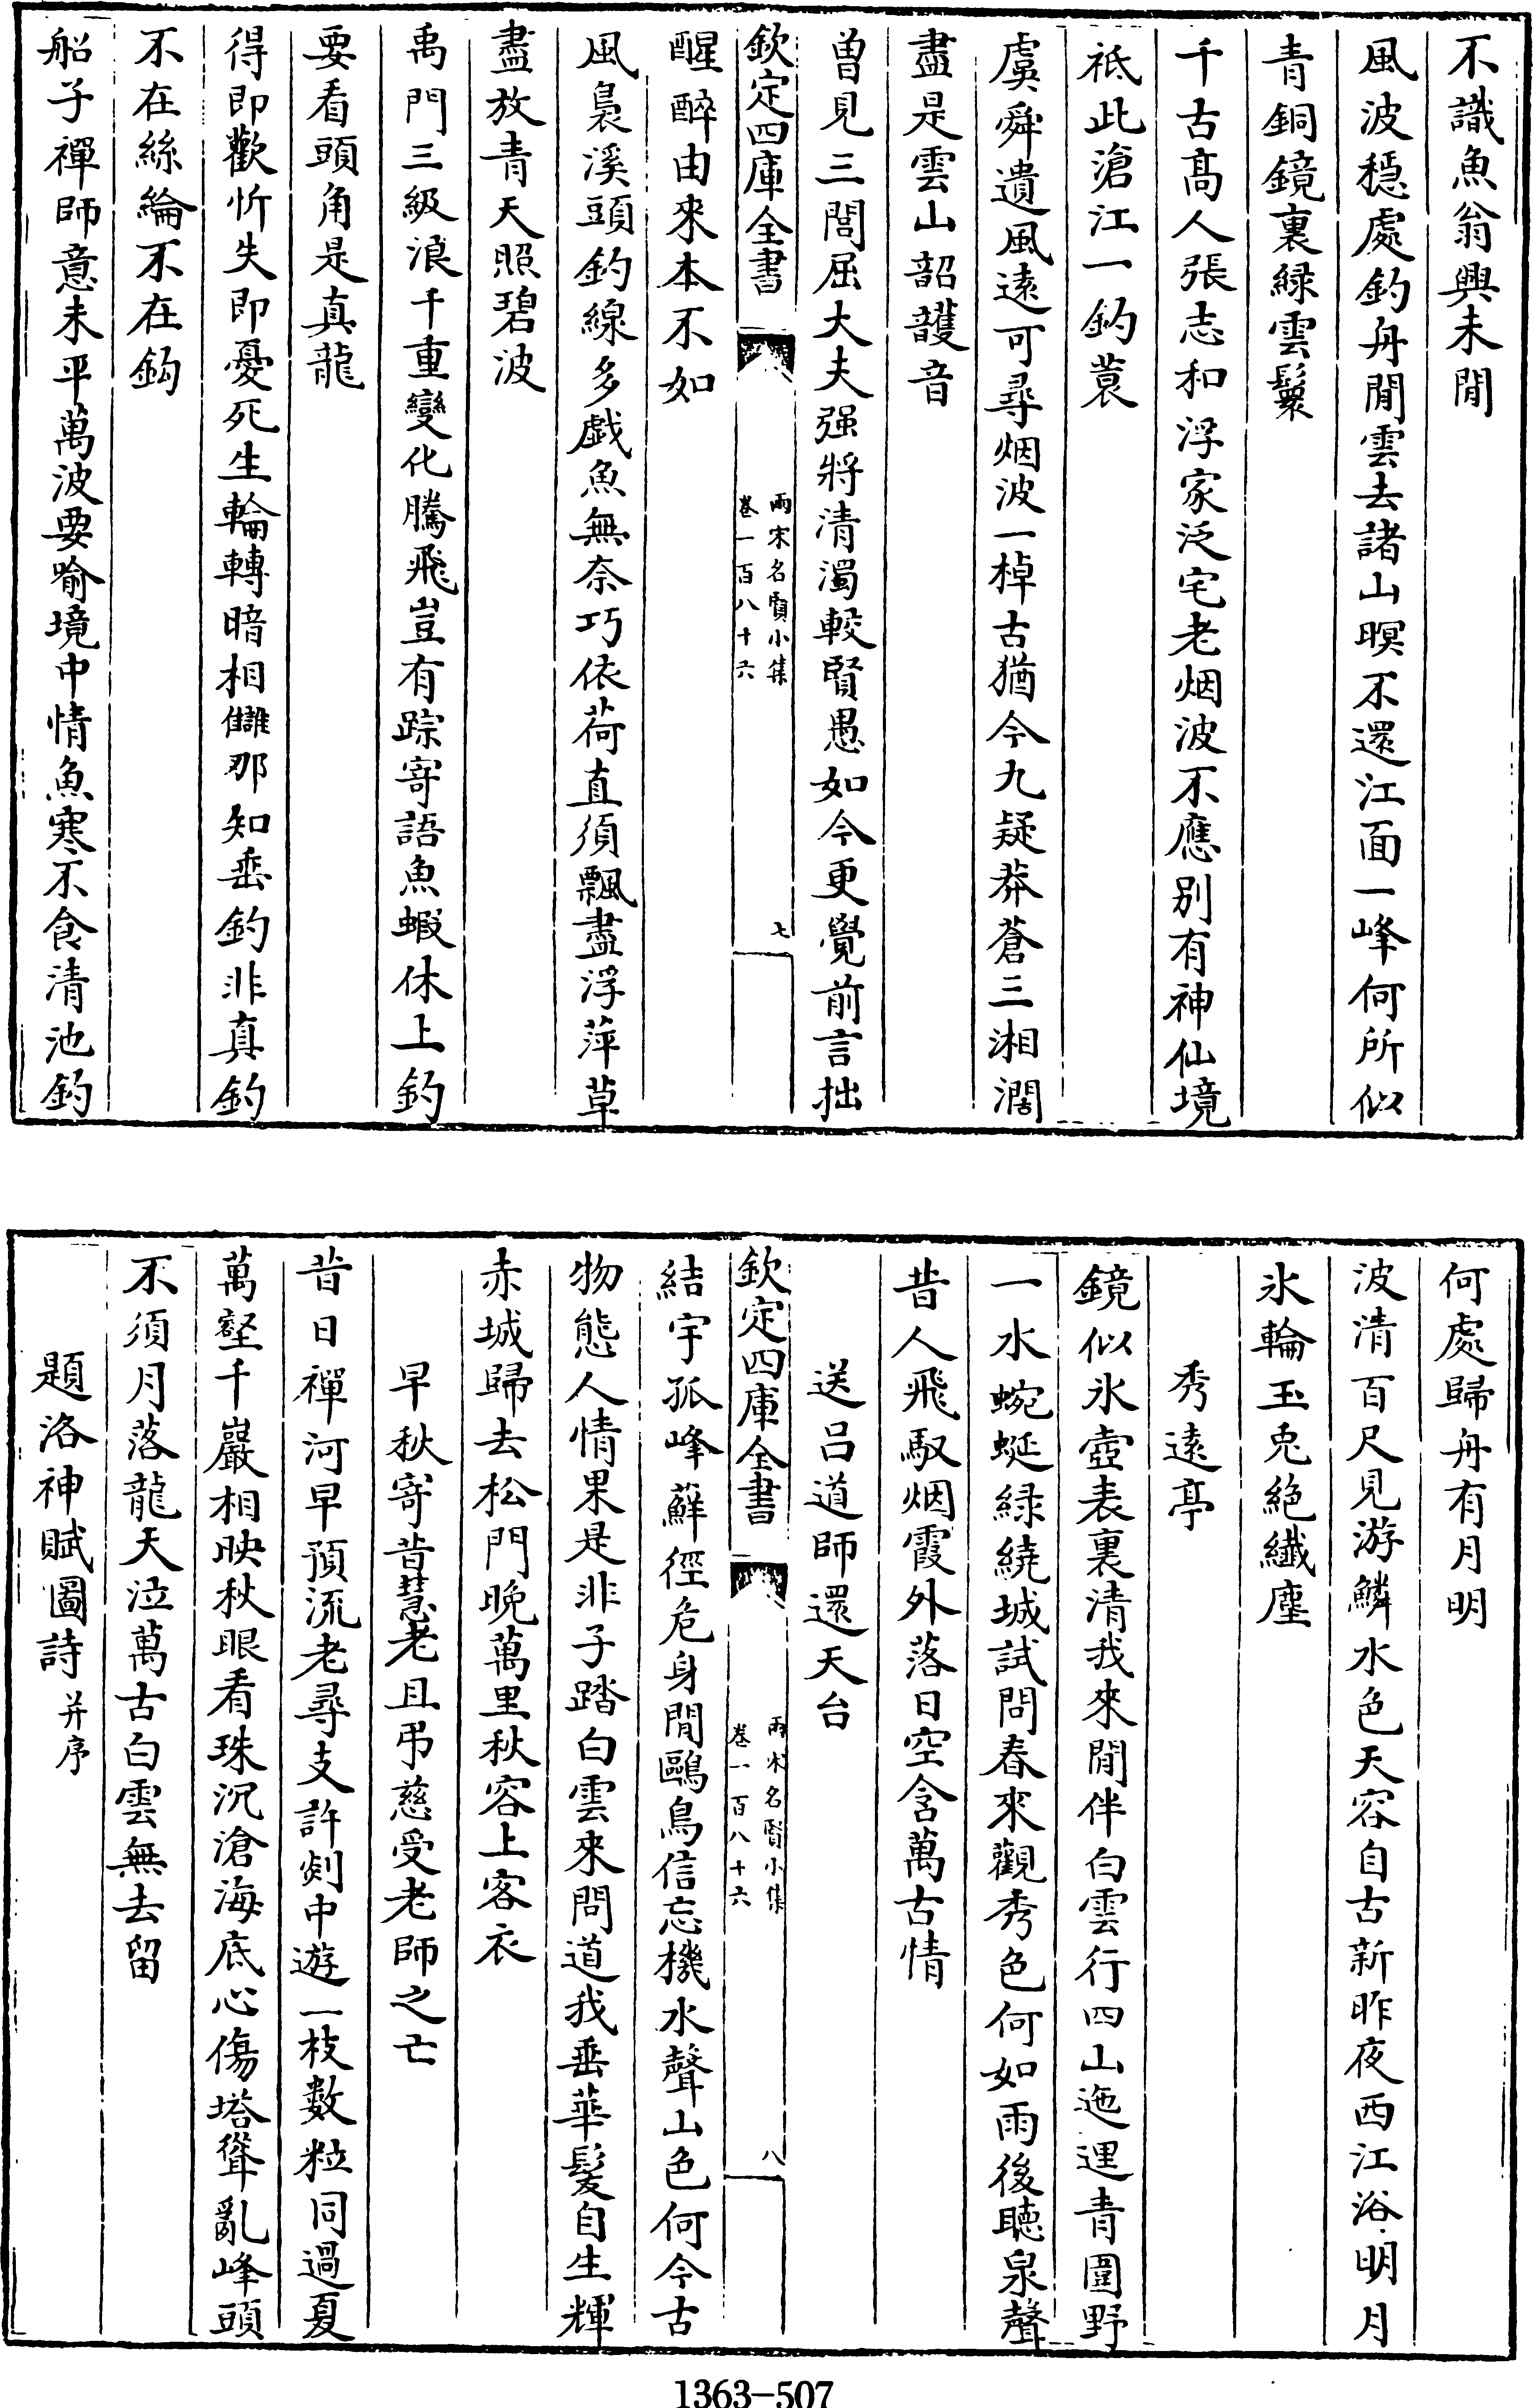 不識魚翁興未閒
風波穩處釣舟閒雲去諸山暝不還江面一峰何所似
青銅鏡裏緑雲鬟
千古髙人張志和浮家泛宅老烟波不應别有神仙境
祗此滄江一釣蓑
虞舜遺風逺可尋烟波一棹古猶今九疑莽蒼三湘濶
盡是雲山韶頀音
曽見三閭屈大夫强將清濁較賢愚如今更覺前言拙
欽定四庫全書
兩宋名賢小集
卷一百八十六
七
醒醉由來本不如
風裊溪頭釣線多戯魚無奈巧依荷直須飄盡浮萍草
盡放青天照碧波
禹門三級浪千重變化騰飛豈有踪寄語魚蝦休上釣
要看頭角是真龍
得即歡忻失即憂死生輪轉暗相讎那知垂釣非真釣
不在絲綸不在鈎
船子禪師意未平萬波要喻境中情魚寒不食清池釣
何處歸舟有月明
波清百尺見游鱗水色天容自古新昨夜西江浴明月
氷輪玉兎絶纎塵
秀逺亭
鏡似氷壺表裏清我來閒伴白雲行四山迤邐青圍野
一水蜿蜒緑繞城試問春來觀秀色何如雨後聽泉聲
昔人飛馭烟霞外落日空含萬古情
送吕道師還天台
欽定四庫全書
兩宋名賢小集
卷一百八十六
八
結宇孤峰蘚徑危身閒鷗鳥信忘機水聲山色何今古
物態人情果是非子踏白雲來問道我垂華髮自生輝
赤城歸去松門晚萬里秋容上客衣
早秋寄昔慧老且弔慈受老師之亡
昔日禪河早預流老尋支許剡中遊一枝數粒同過夏
萬壑千巖相映秋眼看珠沉滄海底心傷塔聳亂峰頭
不須月落龍天泣萬古白雲無去留
題洛神賦圖詩并序
1363-507